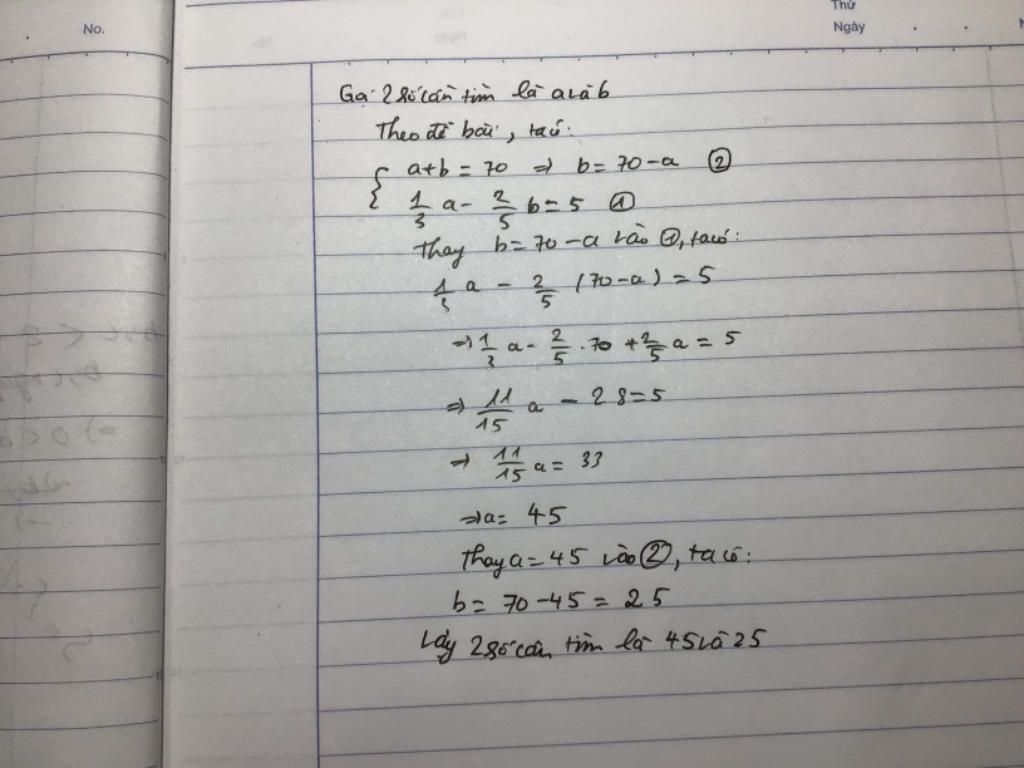 No.
Thứ
Ngày
Gọi 2 số cần tìm là a và b
Theo đề bài, ta có:
{ a+b = 70 ⇒ b = 70-a ②
1/3 a - 2/5 b = 5 ①
Thay b = 70-a vào ①, ta có:
1/3 a - 2/5 (70-a) = 5
⇒ 1/3 a - 2/5 . 70 + 2/5 a = 5
⇒ 11/15 a - 28 = 5
⇒ 11/15 a = 33
⇒ a = 45
Thay a = 45 vào ②, ta có:
b = 70-45 = 25
Vậy 2 số cần tìm là 45 và 25